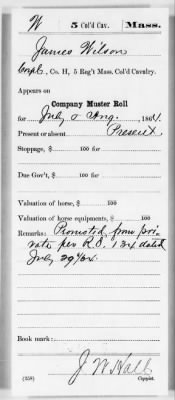 W 5 Col'd Cav. Mass.
James Wilson
Corpl, Co. H, 5 Reg't Mass. Col'd Cavalry.
Appears on
Company Muster Roll
for July & Aug., 1864.
Present or absent Present.
Stoppage, $ 100 for
Due Gov't, $ 100 for
Valuation of horse, $ 100
Valuation of horse equipments, $ 100
Remarks: Promoted from pri
vate per R.O. 134 dated
July 29/64.
Book mark:
J W Hall
(358) Copyist.